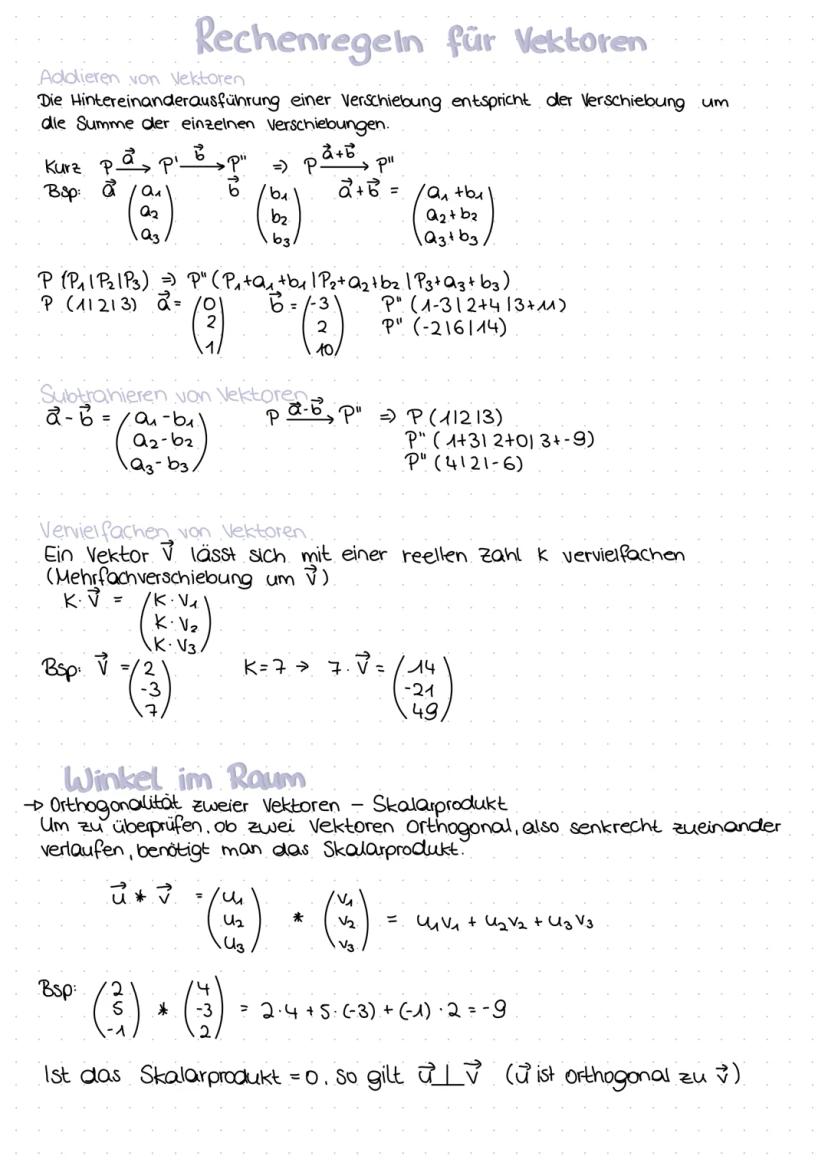 Rechenregeln für Vektoren
Addieren von Vektoren
Die Hintereinanderausführung einer Verschiebung entspricht der Verschiebung um
die Summe der einzelnen Verschiebungen.
Kurz P →(a⃗) P' →(b⃗) P'' ⇒ P →(a⃗+b⃗) P''
Bsp: a⃗ (a₁ a₂ a₃) b⃗ (b₁ b₂ b₃) a⃗+b⃗ = (a₁+b₁ a₂+b₂ a₃+b₃)
P (P₁|P₂|P₃) ⇒ P'' (P₁+a₁+b₁|P₂+a₂+b₂|P₃+a₃+b₃)
P (1|2|3) a⃗ = (0 2 1) b⃗ = (-3 2 10) P'' (1-3|2+4|3+11)
P'' (-2|6|14)
Subtrahieren von Vektoren
a⃗-b⃗ = (a₁-b₁ a₂-b₂ a₃-b₃) P →(a⃗-b⃗) P'' ⇒ P (1|2|3)
P'' (1+3|2+0|3+-9)
P'' (4|2|-6)
Vervielfachen von Vektoren
Ein Vektor V⃗ lässt sich mit einer reellen Zahl K vervielfachen
(Mehrfachverschiebung um V⃗)
K·V⃗ = (K·V₁ K·V₂ K·V₃)
Bsp: V⃗ = (2 -3 7) K=7 → 7·V⃗ = (14 -21 49)
Winkel im Raum
→ Orthogonalität zweier Vektoren – Skalarprodukt
Um zu überprüfen, ob zwei Vektoren orthogonal, also senkrecht zueinander
verlaufen, benötigt man das Skalarprodukt.
u⃗ * v⃗ = (u₁ u₂ u₃) * (v₁ v₂ v₃) = u₁v₁ + u₂v₂ + u₃v₃
Bsp: (2 5 -1) * (4 -3 2) = 2·4 + 5·(-3) + (-1)·2 = -9
Ist das Skalarprodukt = 0, so gilt u⃗ ⊥ v⃗ (u⃗ ist orthogonal zu v⃗)